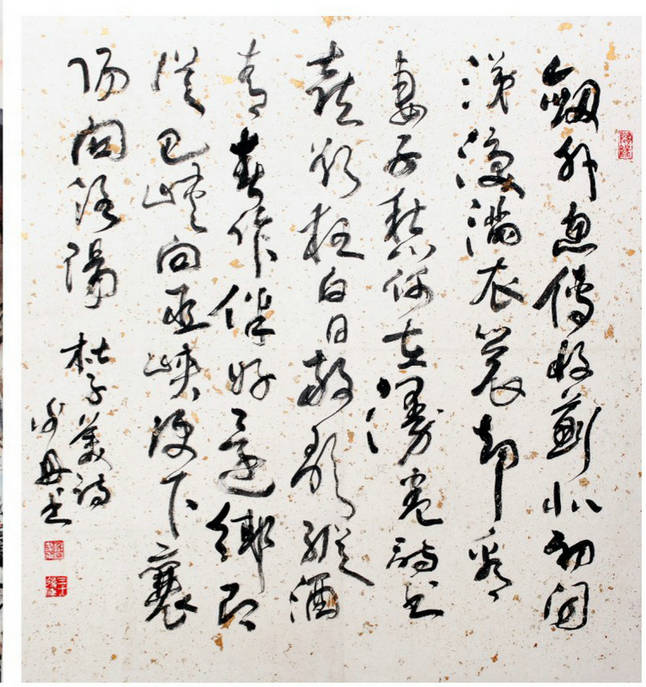 劍外忽傳收薊北初聞
涕淚滿衣裳却看
妻子愁何在漫卷詩书
喜欲狂白日放歌縱酒
青春作伴好還鄉即
從巴峽向巫峽便下襄
陽向洛陽
杜子美詩
丹书